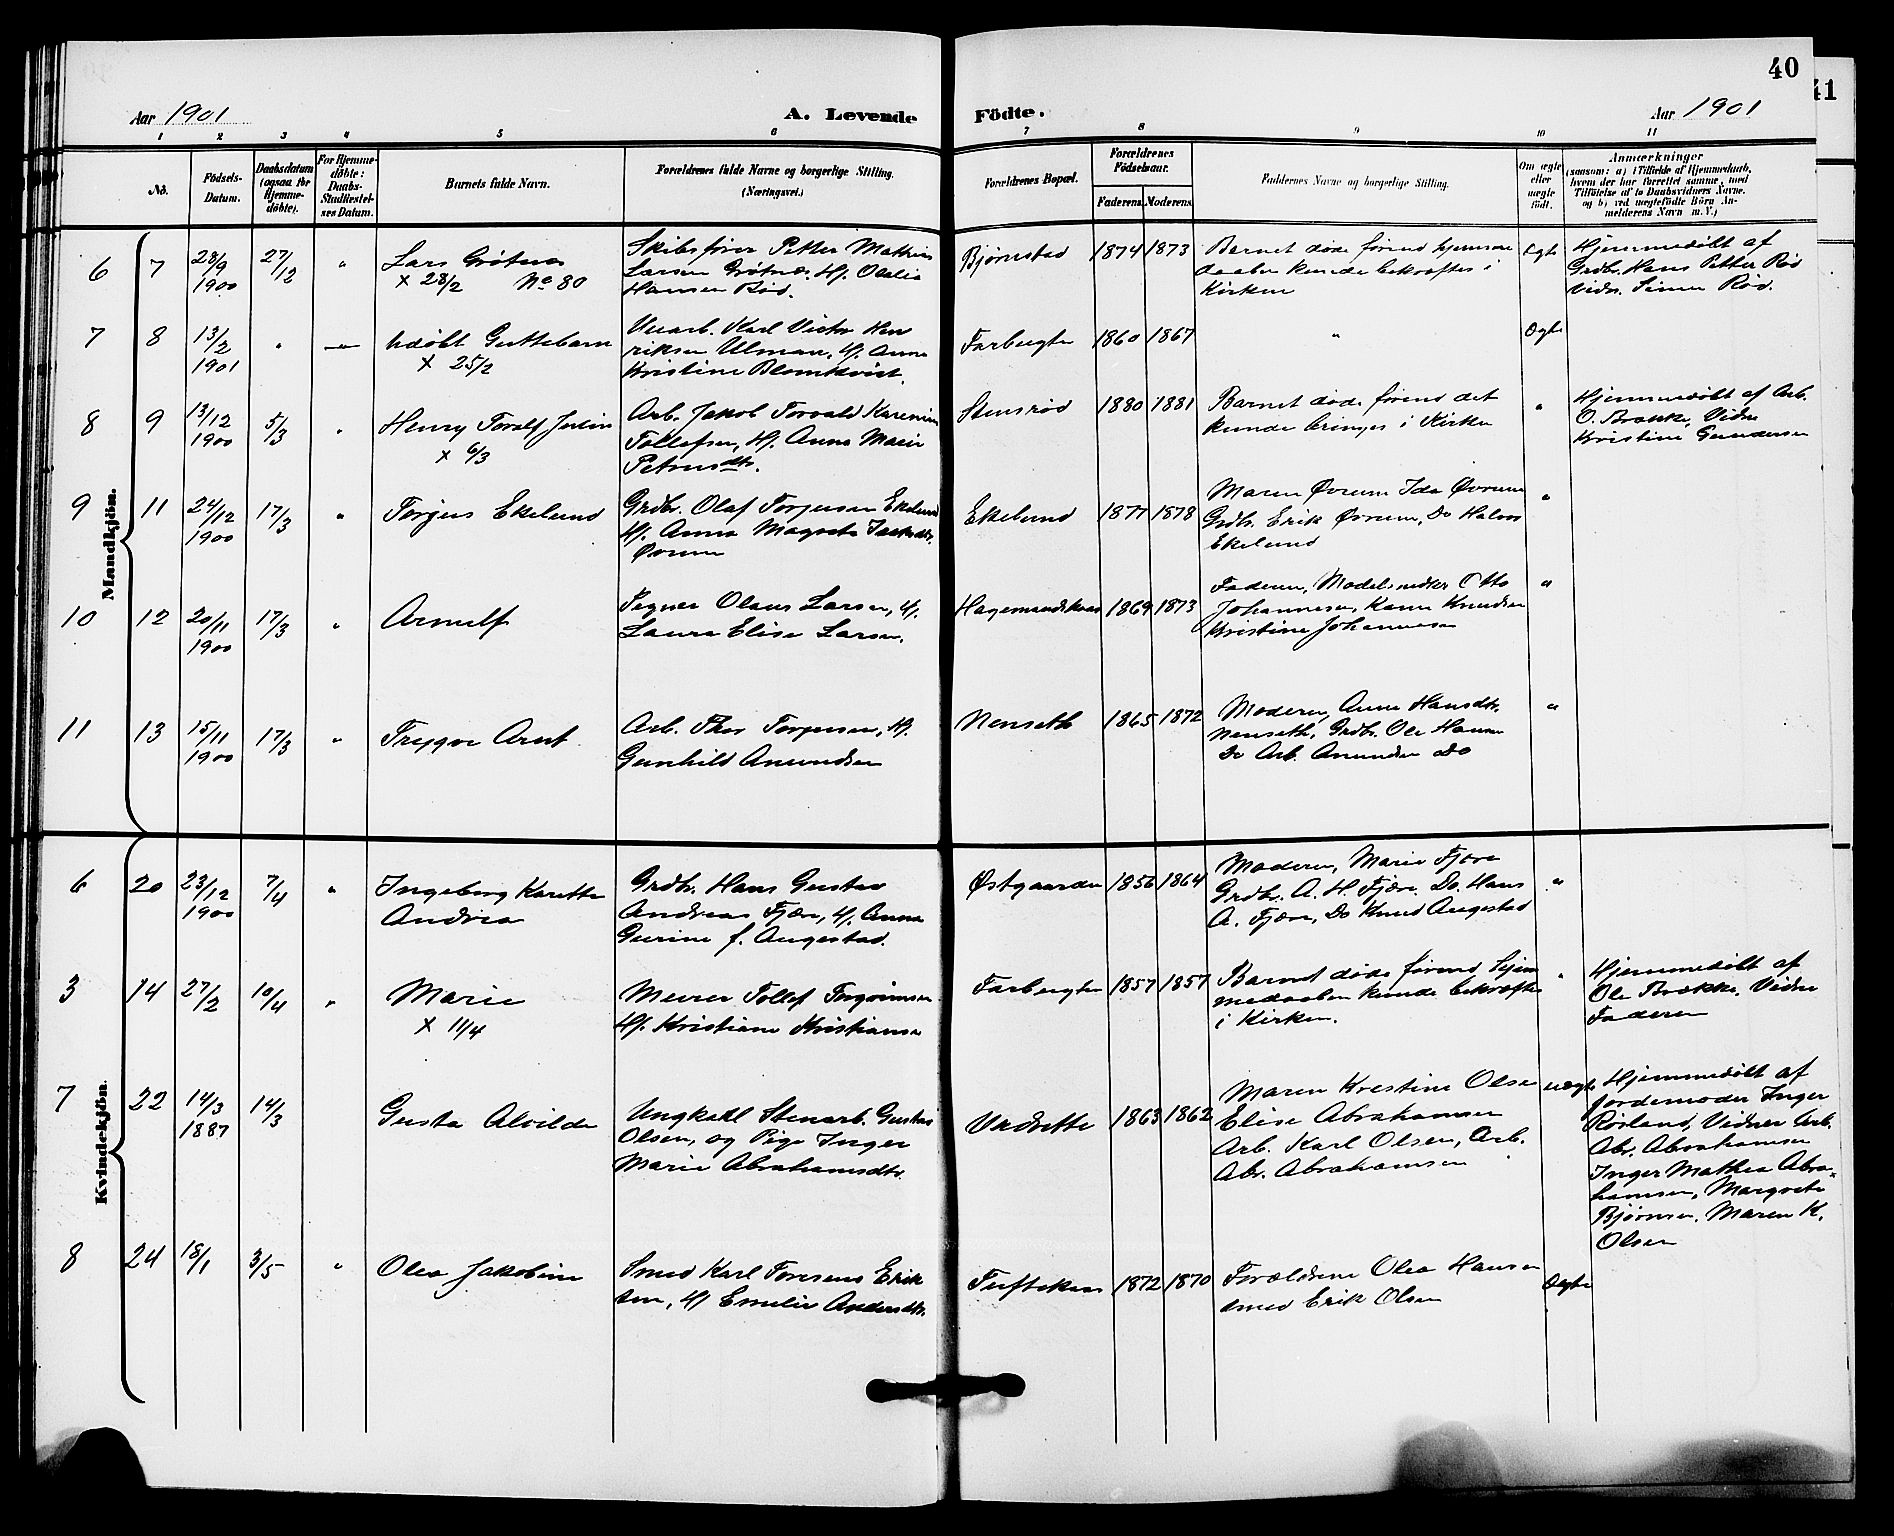 40
41
Aar 1901
A. Levende
Födte.
Aar 1901
1 2 3 4 5 6 7 8 9 10 11
No.
Födsels-
Datum.
Daabsdatum
(ogsaa for
Hjemme-
döbte).
For Hjemme-
döbte:
Daabs-
Stadfæstel-
ses Datum.
Barnets fulde Navn.
Forældrenes fulde Navne og borgerlige Stilling.
(Næringsvei.)
Forældrenes Bopæl.
Forældrenes
Födselsaar.
Faderens. Moderens.
Faddernes Navne og borgerlige Stilling.
Om ægte
eller
uægte
født.
Anmærkninger
(saasom: a) i Tilfælde af Hjemmedaab,
hvem der har forrettet samme, med
Tilföielse af to Daabsvidners Navne,
og b) ved uægtefödte Börn An-
melderens Navn m. V.)
Mandkjön.
6 7 28/9
1900
27/12 "
Lars Grötnes
x 28/2 No 80
Skibsfører Petter Mathias
Larsen Grötnes, H/. Olalia
Hansen Röd.
Bjørnstad 1874 1873
Barnet døde förend hjemme
daaben kunde bekræftes i
Kirken
Ægte
Hjemmedöbt af
Grdbr. Hans Petter Röd
Vidn. Simen Röd.
7 8 13/2
1901
" — " —
Udöbt Guttebarn
x 25/2
Karl Victor Hen
riksen Ulman, H/. Anna
Kristine Blomkvist.
Farbergte 1860 1867 " Ægte
8 9 13/12
1900
5/3 "
Henry Toralf Justin
x 6/3
Arb. Jakob Torvald Karenius
Tollefsen, H/. Anna Marie
Petrusdtr.
Stensröd 1880 1881
Barnet døde förend det
kunde bringes i Kirken
"
Hjemmedöbt af Arb.
O. Brække, Vidne
Kristine Gundersen
9 11 24/12
1900
17/3 "
Torjus Ekelund
Grdbr. Olaf Torjussen Ekelund
H/. Anna Magrete Isaksdtr.
Øvrum
Ekelund 1877 1878
Maren Øvrum Ida Øvrum
Grdbr. Erik Øvrum, Do Halvor
Ekelund
"
10 12 20/11
1900
17/3 "
Arnulf
Tegner Olaus Larsen, H/.
Laura Elise Larsen.
Hagemandskaas 1869 1873
Faderen, Modelsnedker Otto
Johannesen, Karen Knudsen
Kristine Johannesen
"
11 13 15/11
1900
17/3 "
Trygve Arnt
Arb. Thor Torjussen, H/.
Gunhild Amundsen
Nenseth 1865 1872
Moderen, Anne Hansdtr.
Nenseth, Grdbr. Ole Hansen
Do Arb. Amundsen Do
"
Kvindekjön.
6 20 23/12
1900
7/4 "
Ingeborg Karette
Andrea
Grdbr. Hans Gustav
Andreas Fjære, H/. Anna
Gurine f. Augestad.
Østgaarden 1856 1864
Moderen, Marie Fjære
Grdbr. A. H. Fjære. Do. Hans
A. Fjære, Do Knud Augestad
"
3 14 27/2 10/4 "
Marie
x 11/4
Murer Tollef Torgrimsen
H/. Kristiane Kristiansen
Farbergte 1857 1857
Barnet døde förend hjem
medaaben kunde bekræftes
i Kirken.
"
Hjemmedöbt af
Ole Brække. Vidne
Faderen
7 22 14/3
1887
14/3
Gusta Alvilde
Ungkarl Stenarb. Gustav
Olsen, og Pige Inger
Marie Abrahamsdtr.
1863 1862
Maren Kristine Olsen
Elise Abrahamsen
Arb. Karl Olsen, Arb.
Abr. Abrahamsen
uægte
Hjemmedöbt af
Jordemoder Inger
Rösland, Vidner Arb.
Abr. Abrahamsen
Inger Mathea Abra-
hamsen, Margrete
Bjørnsen. Maren K.
Olsen
8 24 18/1 3/5 "
Olea Jakobine
Smed Karl Toresens Erik
sen, H/ Emelie Andersdtr.
Tuftekaas 1872 1870
Forældrene Olea Hansen
Smed Erik Olsen
Ægte